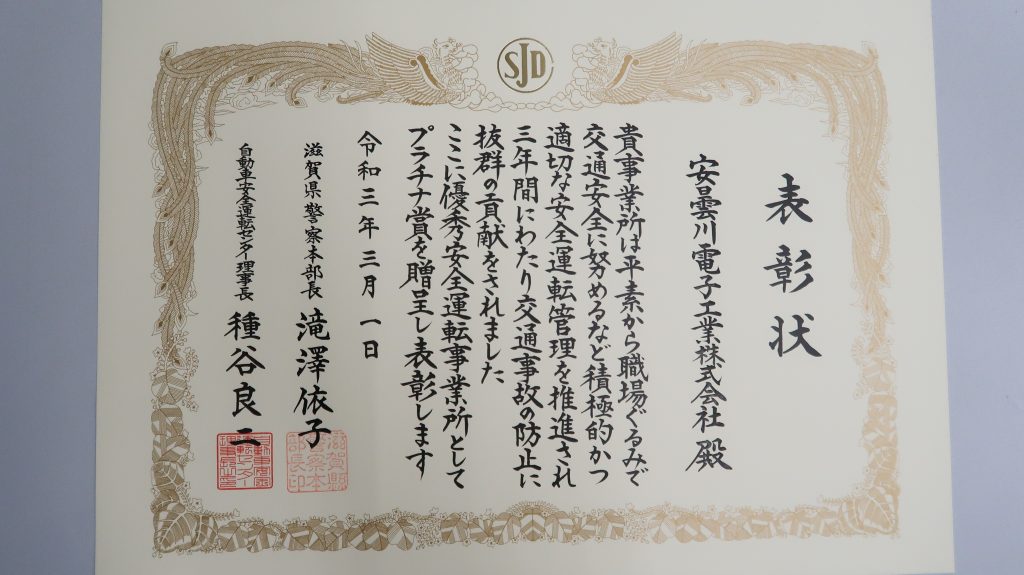 SJD
表彰状
安曇川電子工業株式会社 殿
貴事業所は平素から職場ぐるみで
交通安全に努めるなど積極的かつ
適切な安全運転管理を推進され
三年間にわたり交通事故の防止に
抜群の貢献をされました
ここに優秀安全運転事業所として
プラチナ賞を贈呈し表彰します
令和三年三月一日
滋賀県警察本部長 滝澤依子
滋賀県警察本部長印
自動車安全運転センター理事長 種谷良二
自動車安全運転センター理事長印